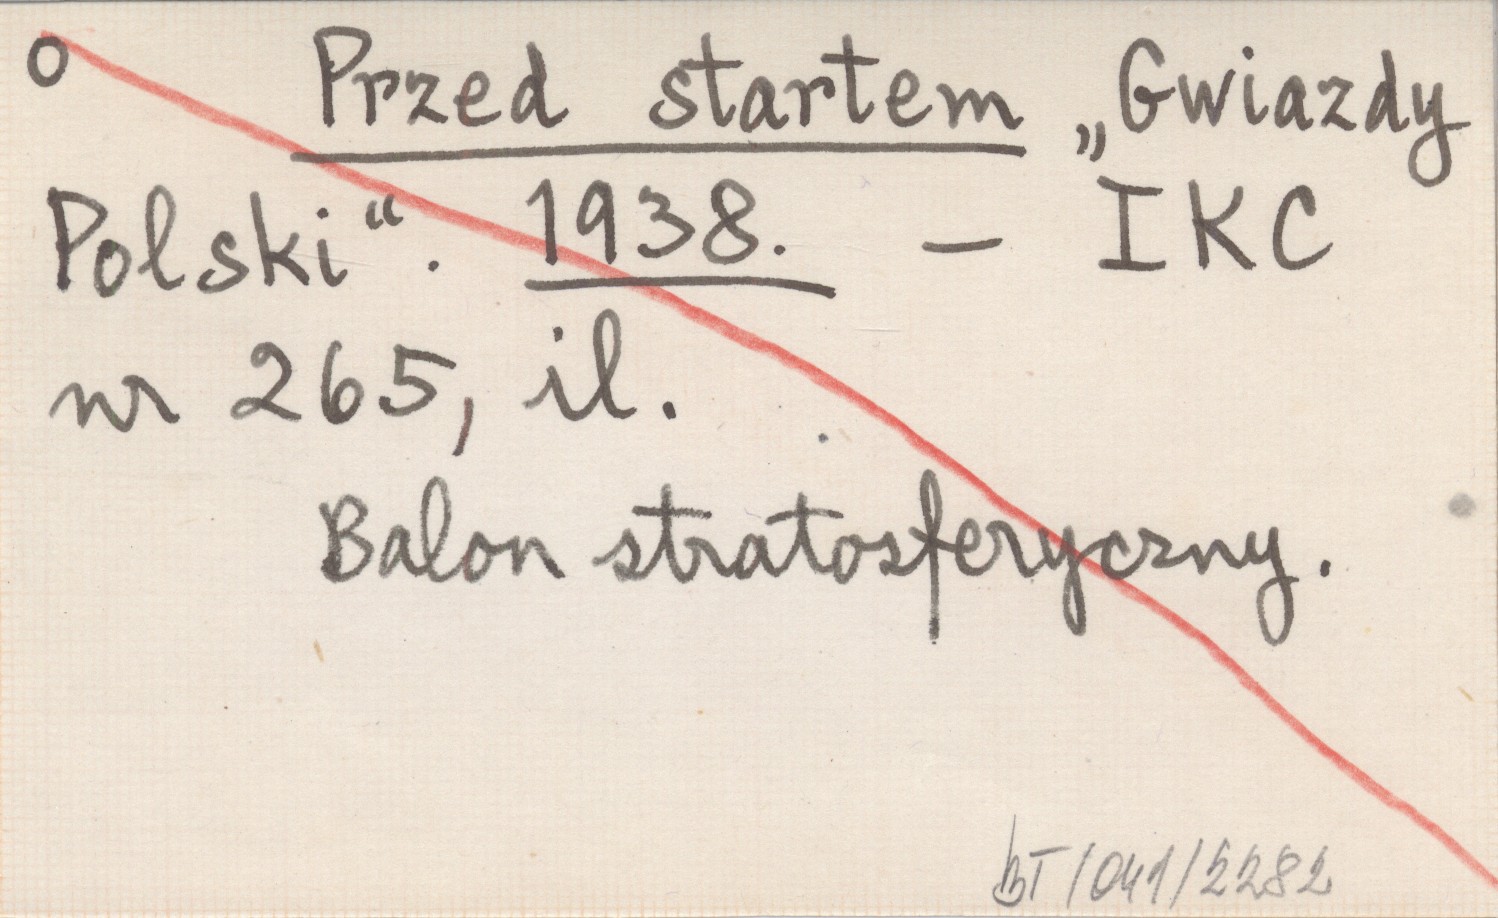 o Przed startem „Gwiazdy
Polski“. 1938. — IKC
nr 265, il.
Balon stratosferyczny.
BT/041/2282